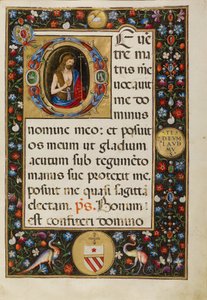 D E uē
tre ma
tris mee
uocauit
me do
minus
nomine meo: et posuit
os meum ut gladiū
acutum sub tegumēto
manus sue protexit me,
posuit me quasi sagittā
electam. ps. Bonum
est confiteri domino
TE
DEVM
LAVD